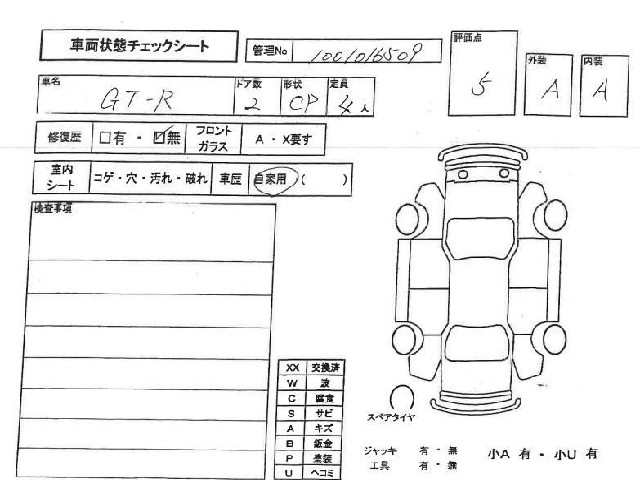 車両状態チェックシート 管理No 1001016509 評価点 5 外装 A 内装 A
車名 GT-R ドア数 2 形状 CP 定員 4人
修復歴 □有・☑無 フロントガラス A・X要す
室内シート コゲ・穴・汚れ・破れ 車歴 自家用 ( )
検査事項
XX 交換済
W 波
C 腐食
S サビ
A キズ
B 鈑金
P 塗装
U ヘコミ
スペアタイヤ
ジャッキ 有・無
工具 有・無
小A 有・小U 有